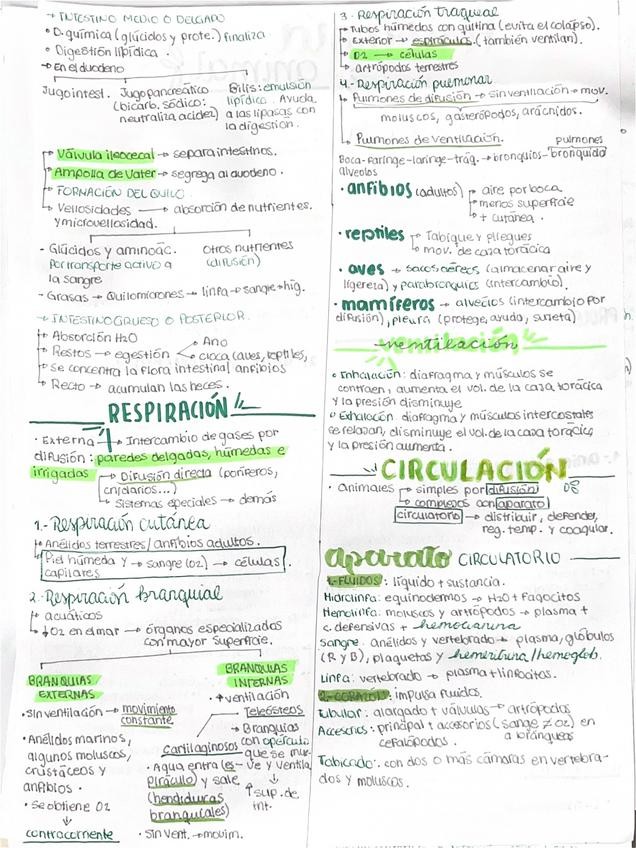 → INTESTINO MEDIO O DELGADO
• D. química (glúcidos y prote.) finaliza
• Digestión lipídica.
• en el duodeno
Jugo intest.
Jugo pancreático
(bicarb. sódico:
neutraliza acidez)
Bilis: emulsión
lipídica. Ayuda
a las lipasas con
la digestión.
Válvula ileocecal → separa intestinos.
Ampolla de Vater → segrega al duodeno.
FORMACIÓN DEL QUILO
Vellosidades → absorción de nutrientes.
y microvellosidad.
- Glúcidos y aminoác.
Por transporte activo a
la sangre
Otros nutrientes
(difusión)
- Grasas → Quilomicrones → linfa → sangre → hig.
→ INTESTINO GRUESO O POSTERIOR.
Absorción H2O
Restos → egestión
Ano
cloaca (aves, reptiles,
Se concentra la flora intestinal anfibios
Recto → acumulan las heces.
RESPIRACIÓN
• Externa → Intercambio de gases por
difusión: paredes delgadas, húmedas e
irrigadas
Difusión directa (poríferos,
cnidarios...)
Sistemas especiales → demás
1.- Respiración cutánea
Anélidos terrestres/anfibios adultos.
Piel húmeda y → sangre (O2) → células
capilares
2.- Respiración branquial
acuáticos
↓O2 en el mar → órganos especializados
con mayor superficie.
BRANQUIAS
EXTERNAS
• Sin ventilación → movimiento
constante.
• Anélidos marinos,
algunos moluscos,
crustáceos y
anfibios.
• Se obtiene O2
↓
contracorriente
BRANQUIAS
INTERNAS
• + ventilación
Cartilaginosos
• Agua entra (es-
piráculo) y sale
(hendiduras
branquicales)
• Sin vent. → movim.
Teleósteos
→ Branquias
con opérculo
que se mue-
ve y ventila
↓
↑ sup. de
int.
3.- Respiración traqueal
Tubos húmedos con quitina (evita el colapso).
Exterior → espiráculos (también ventilan).
O2 → células
artrópodos terrestres
4.- Respiración pulmonar
Pulmones de difusión → sin ventilación → mov.
moluscos, gasterópodos, arácnidos.
Pulmones de ventilación.
pulmones
Boca-faringe-laringe-tráq. → bronquios → bronquiolo
alveolos
• anfibios (adultos)
aire por boca
menos superficie
+ cutánea.
• reptiles
Tabique y pliegues
mov. de caja torácica
• aves → sacos aéreos (almacenar aire y
ligereza) y parabronquios (intercambio).
• mamíferos → alveolos (intercambio por
difusión), pleura (protege, ayuda, sujeta)
ventilación
• Inhalación: diafragma y músculos se
contraen, aumenta el vol. de la caja torácica
y la presión disminuye
• Exhalación diafragma y músculos intercostales
se relajan, disminuye el vol. de la caja torácica
y la presión aumenta.
CIRCULACIÓN
• Animales
simples por difusión
complejos con aparato
circulatorio → distribuir, defender,
reg. temp. y coagular.
aparato CIRCULATORIO
1.-FLUIDOS: líquido + sustancia.
Hidrolinfa: equinodermos → H2O + fagocitos
Hemolinfa: moluscos y artrópodos → plasma +
c. defensivas + hemocianina
Sangre: anélidos y vertebrado → plasma, glóbulos
(R y B), plaquetas y hemeritrina/hemoglob.
Linfa: vertebrado → plasma + linfocitos.
2.-CORAZÓN: impulsa fluidos.
Tubular: alargado + válvulas → artrópodos
Accesorios: principal + accesorios (sange ≠ O2) en
cefalópodos.
a branquias
Tabicado: con dos o más cámaras en vertebra-
dos y moluscos.